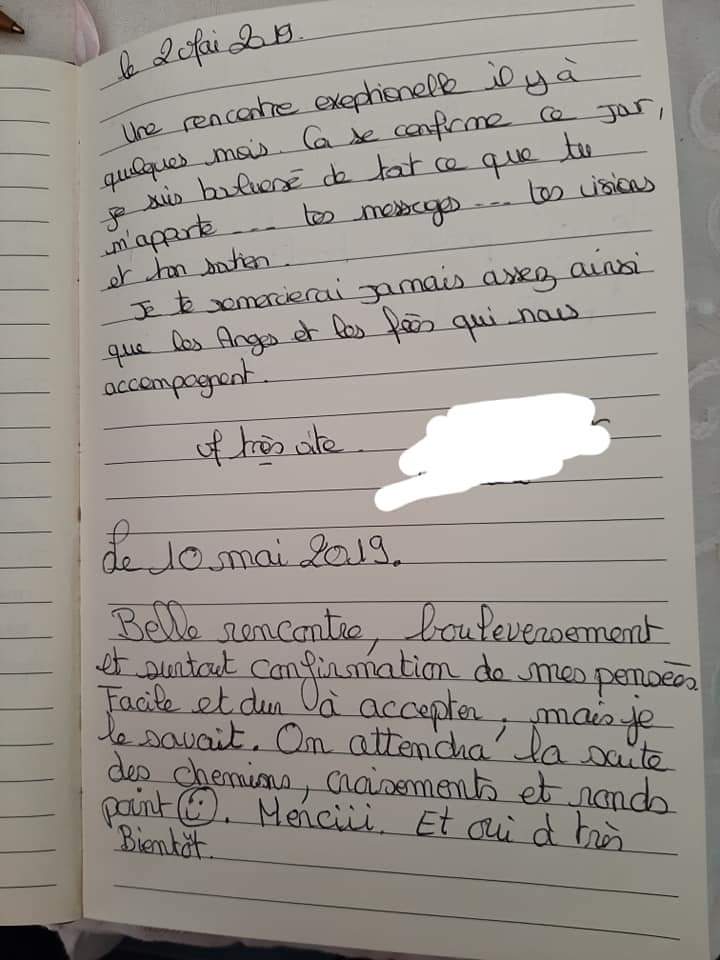 le 2 Mai 2019.
Une rencontre exeptionelle il y à
quelques mois. Ça se confirme ce jour,
je suis boulversé de tout ce que tu
m'apporte .... tes messages .... tes visions
et ton soutien.
Je te remercierai jamais assez ainsi
que les Anges et les fées qui nous
accompagnent.
à très vite.
Le 10 mai 2019.
Belle rencontre, bouleversement
et surtout confirmation de mes pensées
Facile et dur à accepter, mais je
le savait. On attendra la suite
des chemins, croisements et ronds
point. Merciii. Et oui à très
Bientôt.